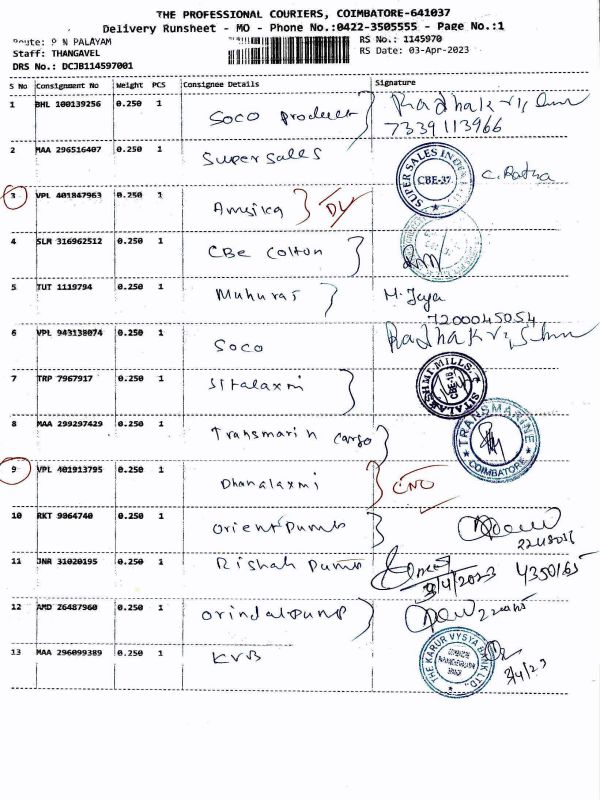 THE PROFESSIONAL COURIERS, COIMBATORE-641037
Delivery Runsheet - MO - Phone No.:0422-3505555 - Page No.:1
Route: P N PALAYAM
RS No.: 1145970
Staff: THANGAVEL
RS Date: 03-Apr-2023
DRS No.: DCJB114597001
S No Consignment No Weight PCS Consignee Details Signature
1 BHL 100139256 0.250 1 Soco product Radhakrishnan
7339113966
2 MAA 296516407 0.250 1 Super Sales SUPER SALES INDIA CBE-37
3 VPL 401847963 0.250 1 Amerika DL
4 SLM 316962512 0.250 1 CBe Colton
5 TUT 1119794 0.250 1 Muhuras M. Jaya
7200045054
6 VPL 943138074 0.250 1 Soco Radhakrishnan
7 TRP 7967917 0.250 1 Sitalaxmi SITALAKSHMI MILLS
8 MAA 299297429 0.250 1 Transmarin cargo TRANSMARINE COIMBATORE
9 VPL 401913795 0.250 1 Dhanalaxmi CNO
10 RKT 9064740 0.250 1 Orient Pump
11 JNR 31020195 0.250 1 Rishab Pump 3/4/2023 4350165
12 AMD 26487960 0.250 1 Orindal pump
13 MAA 296099389 0.250 1 KVB THE KARUR VYSYA BANK LTD., 3/4/23